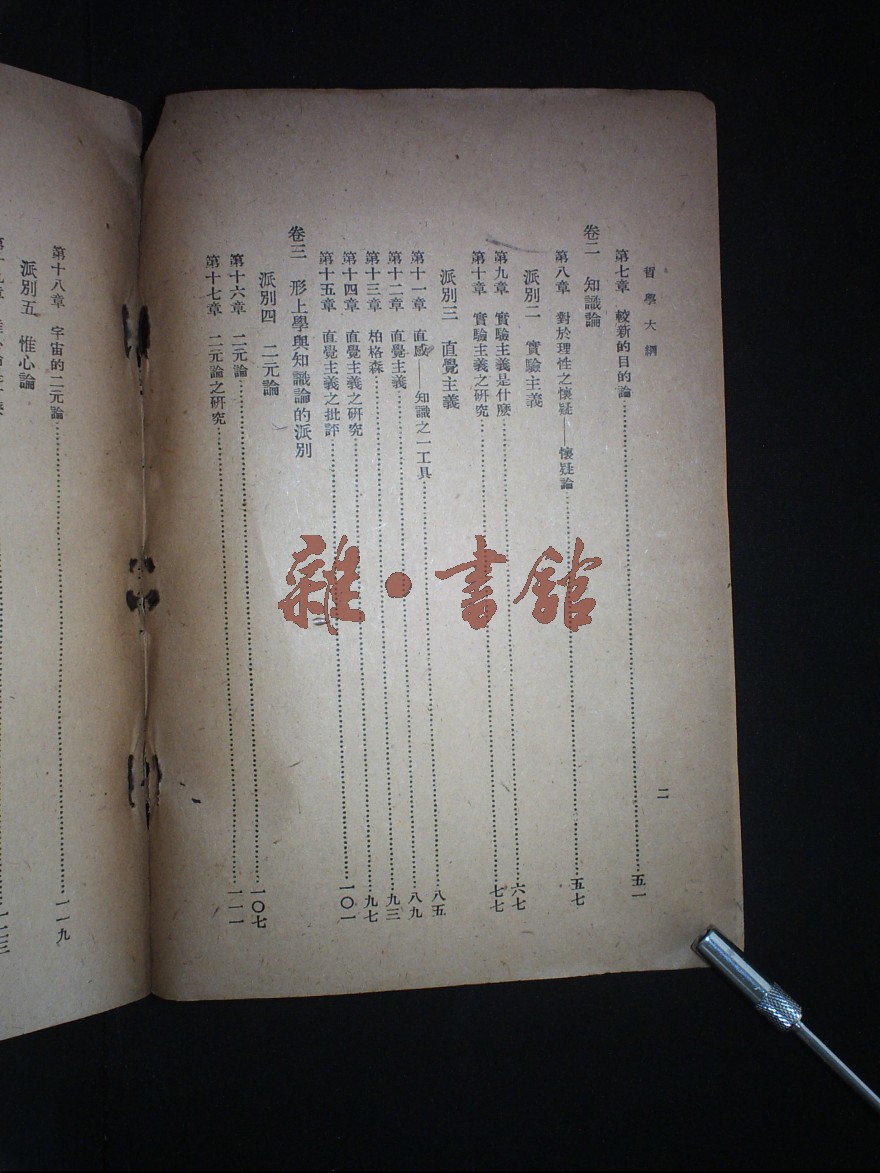 哲學大綱
二
第七章 較新的目的論……五一
卷二 知識論
第八章 對於理性之懷疑——懷疑論……五七
派別二 實驗主義
第九章 實驗主義是什麼……六七
第十章 實驗主義之研究……七七
派別三 直覺主義
第十一章 直感——知識之一工具……八五
第十二章 直覺主義……八九
第十三章 柏格森……九三
第十四章 直覺主義之研究……九七
第十五章 直覺主義之批評……一〇一
卷三 形上學與知識論的派別
派別四 二元論
第十六章 二元論……一〇七
第十七章 二元論之研究……一一一
第十八章 宇宙的二元論……一一九
派別五 惟心論
雜·書館